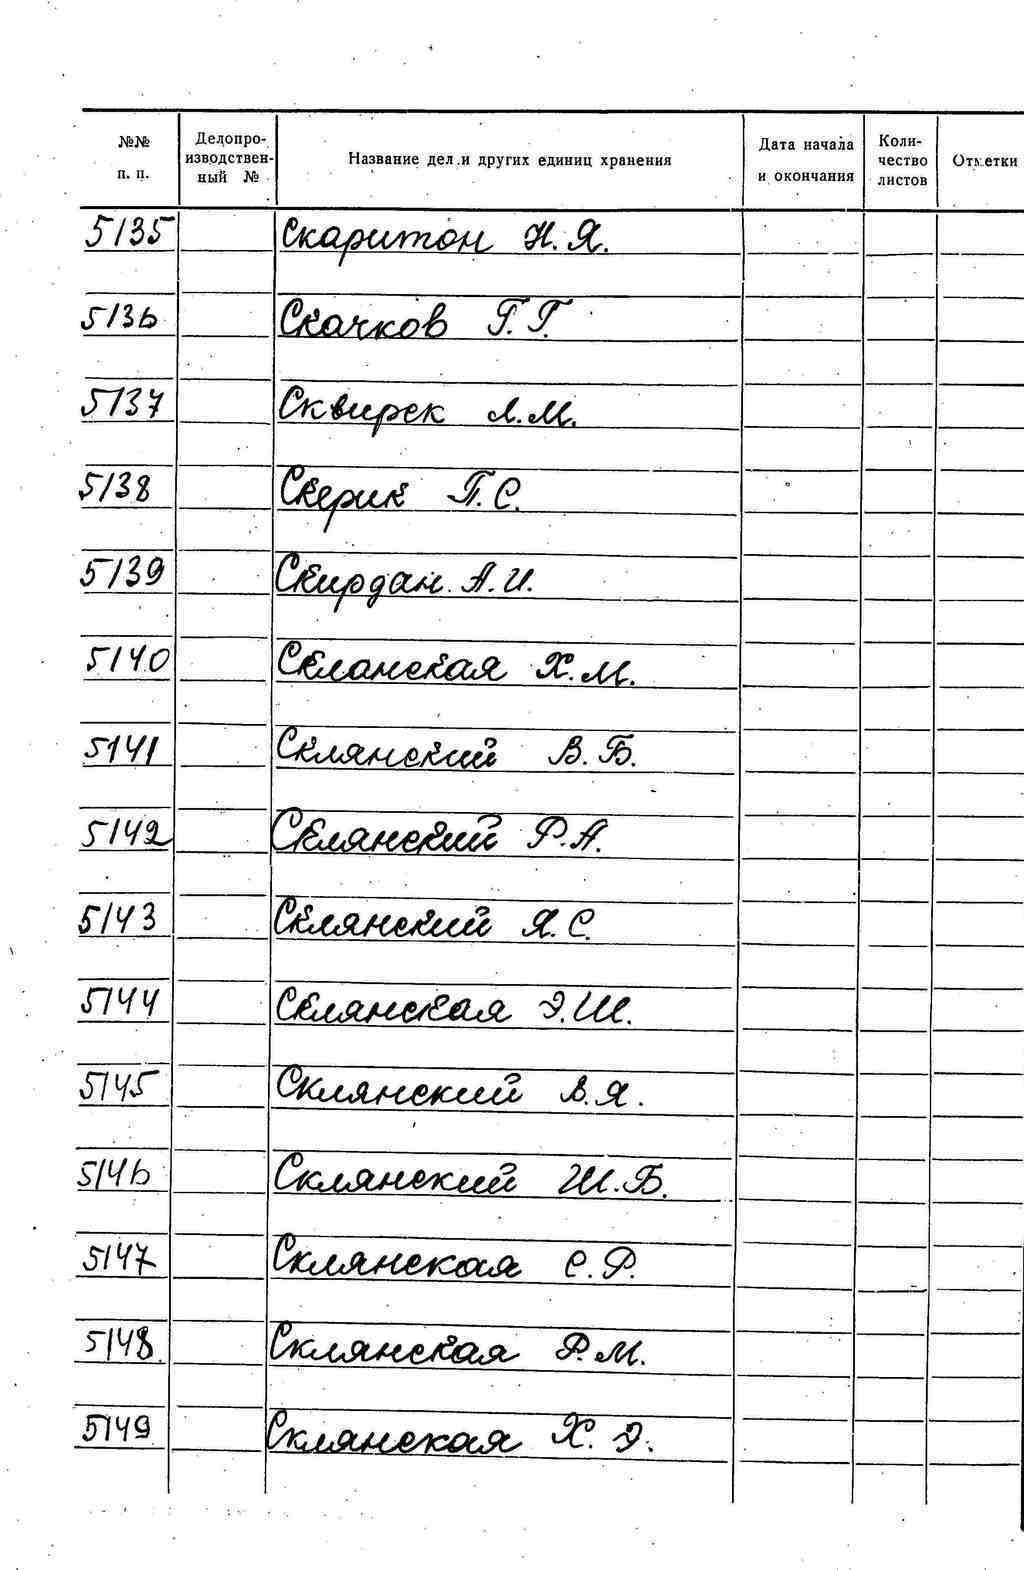 №№ п. п. Делопроизводственный № Название дел и других единиц хранения Дата начала и окончания Количество листов Отметки
5135 Скаритон Н. Я.
5136 Скачков Г. Г.
5137 Сквирек Л. М.
5138 Скерик П. С.
5139 Скирдан А. И.
5140 Скланская Х. М.
5141 Склянский В. Б.
5142 Склянский Р. А.
5143 Склянский Я. С.
5144 Склянская Э. Ш.
5145 Склянский А. Я.
5146 Склянский Ш. Б.
5147 Склянская С. Р.
5148 Склянская Р. М.
5149 Склянская Х. Э.